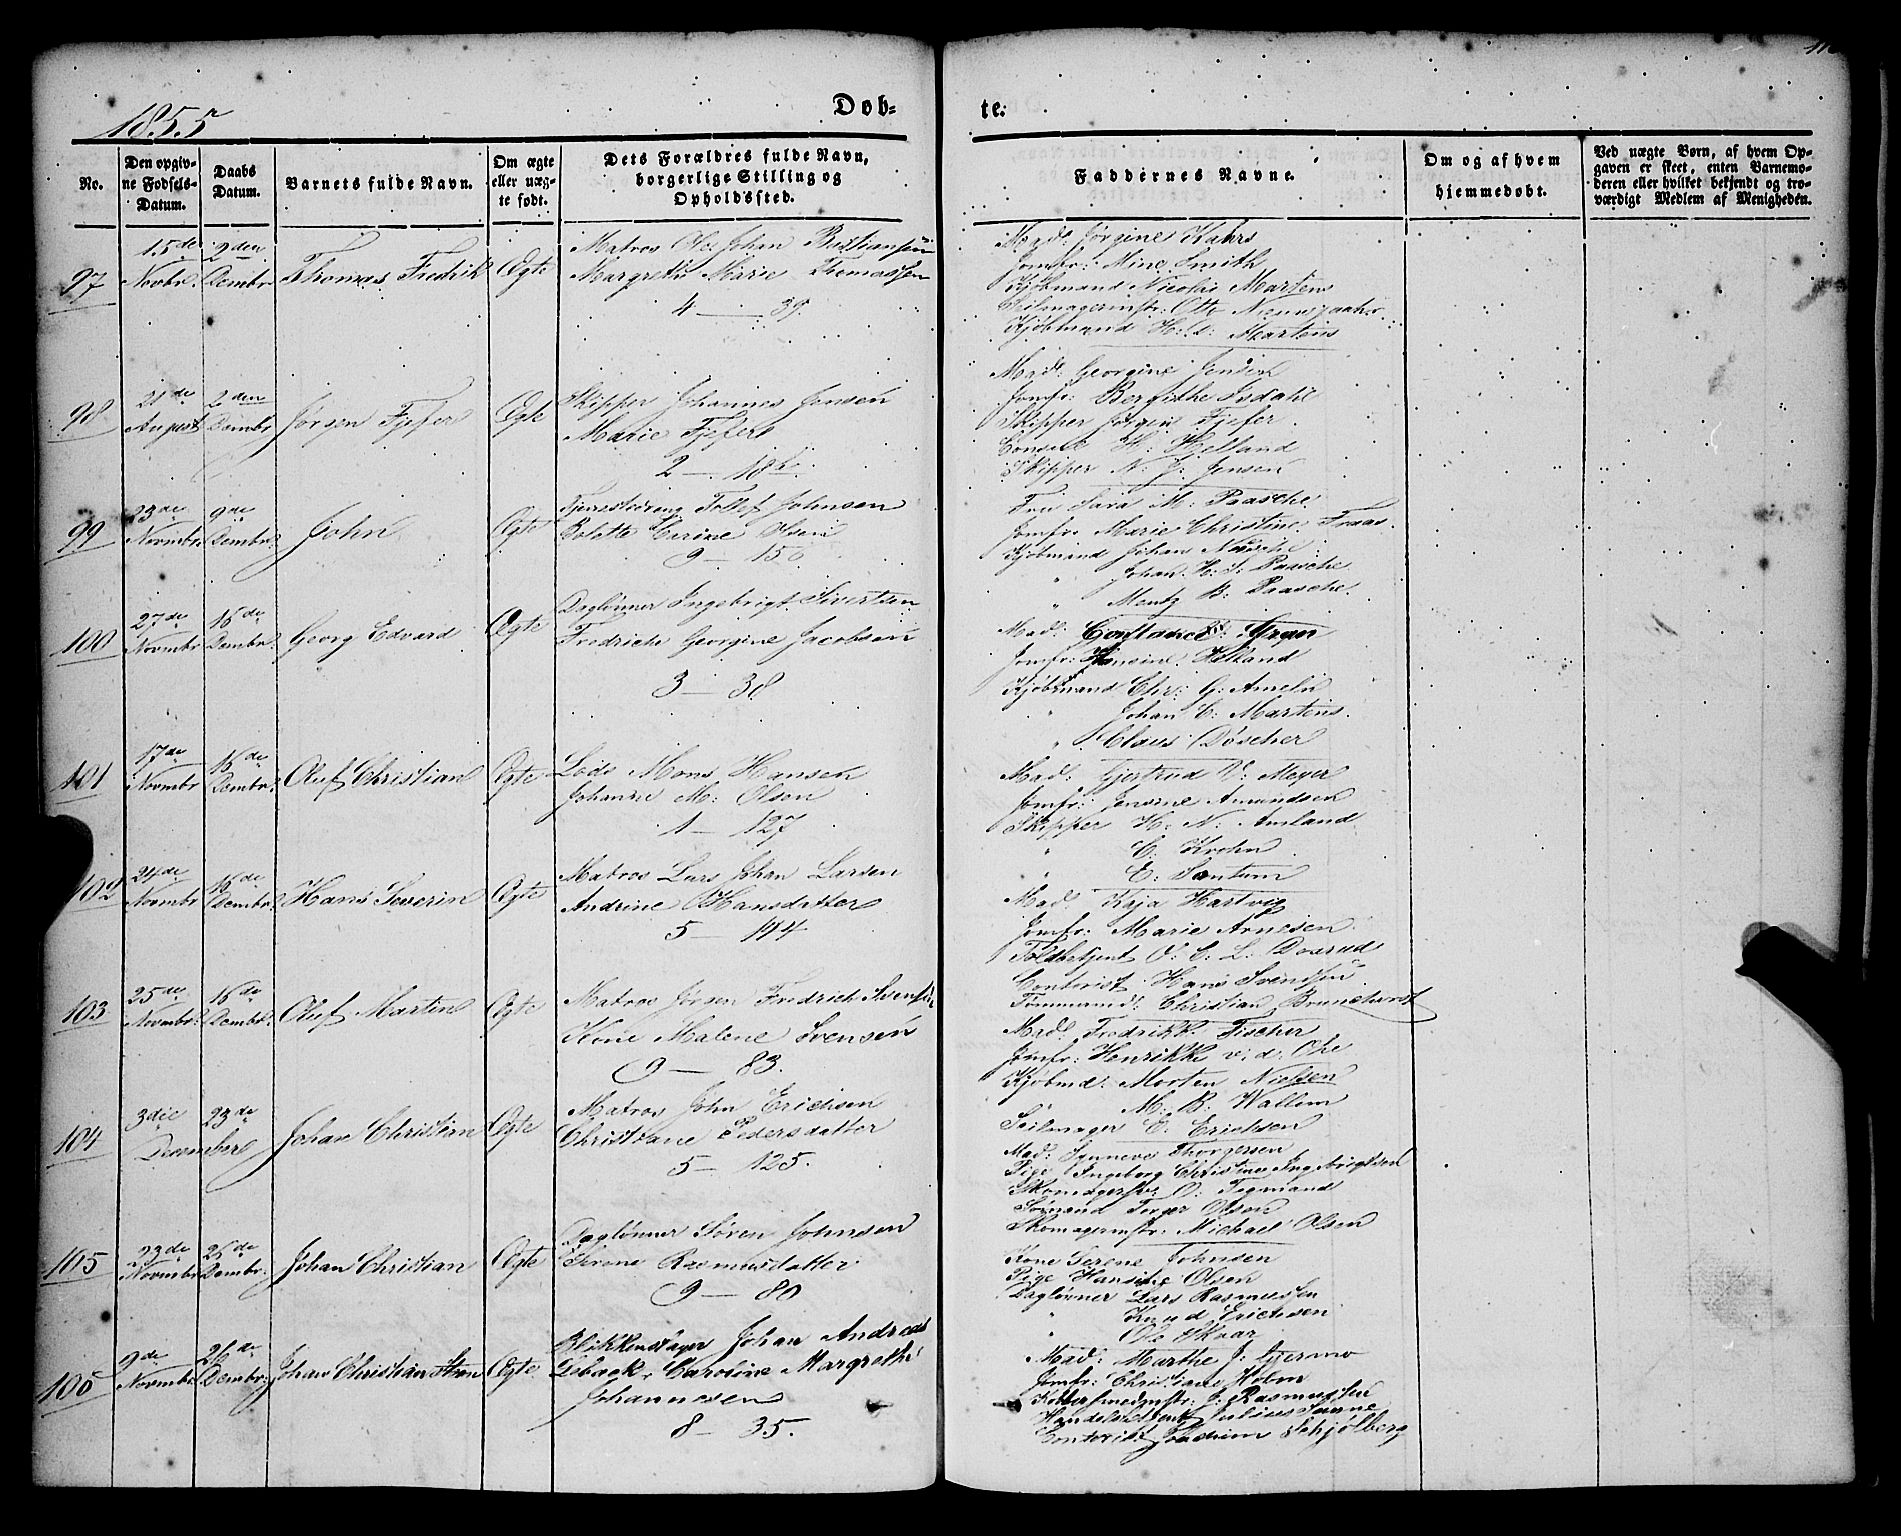 1855
Døb-
te.
No.
Den opgiv-
ne Fødsels-
Datum.
Daabs
Datum.
Barnets fulde Navn.
Om ægte
eller uæg-
te født.
Dets Forældres fulde Navn,
borgerlige Stilling og
Opholdssted.
Faddernes Navne.
Om og af hvem
hjemmedøbt.
Ved uægte Børn, af hvem Op-
gaven er skeet, enten Barnemo-
deren eller hvilket bekjendt og tro-
værdigt Medlem af Menigheden.
97
15de
Novbr.
2den
Dembr
Thomas Fredrik
Ægte
Matros Ole Johan Bastiansen
Margrethe Marie Thomassen
4 — 39.
Mad: Jørgine Kahrs
Jomfr: Mine Smith
Kjøbmand Nicolai Martens
Seilmagermstr: Otto
Kjøbmand H: d: Martens
98
21de
August
2den
Dembr
Jørgen Fjefer
Ægte
Skipper Johannes Jensen
Marie Fjefer
2 — 18
Mad: Georgine Jensen
Jomfr: Bergithe Isdahl
Skipper Jørgen Fjefer
Consul H: Hjelland
Skipper N. J: Jensen
99
23de
Novmbr
9de
Dembr.
John
Ægte
Tollef Johnsen
Bolette Olsen
9 — 150
Fru Sara M: Paasche
Jomfr. Marie Christine Fraas.
Kjøbmand Johan
" Johan H: S: Paasche
" Mentz B. Paasche.
100
27de
Novmbr
16de
Dembr.
Georg Edvard
Ægte
Daglønner Ingebrigt Sivertsen
Fredrich Georgine Jacobsen
3 — 38
Mad: Constance Gran
Jomfr: Hansine
Kjøbmand Chr: G: Ameln
" Johan C: Martens.
" Claus Døscher
101
17de
Novmbr
16de
Dembr.
Oluf Christian
Ægte
Lods Mons Hansen
Johanne M: Olsen
1 — 127
Mad: Gjertrud V: Meyer
Jomfr: Jensine Amundsen
Skipper H: N: Amland
" C. Krohn
" E. Santum
102
24de
Novmbr
16de
Dembr.
Hans Severin
Ægte
Matros Lars Johan Larsen
Andrine Hansdatter
5 — 144
Mad: Kaja Hartvig
Jomfr: Marie Arnesen
Toldbetjent O: C: L:
Contorist Hans Svendsen
Tømmermd: Christian
103
25de
Novmbr.
16de
Dembr.
Oluf Martin
Ægte
Matros Jørgen Fredrich
Kone Malene Svensen
9 — 83.
Mad: Fredrikke Fischer
Jomfr: Henrikke v: d: Ohe
Kjøbmd: Morten Nielsen
M: B: Wallem
Seilmager C. Erichsen
104
3die
23de
December
Johan Christian
Ægte
Matros John Erichsen
Christiane Pedersdatter
5 — 125.
Mad: Synneve Thorgersen
Pige Ingeborg Christine Ingebrigtsen
Skomagersv: O: Tegmand
Sømand Torger Olsen
Skomagermstr: Michael Olsen
105
23de
Novmbr
26de
Dembr.
Johan Christian
Ægte
Daglønner Søren Johnsen
Serene Rasmusdatter
9 — 80
Kone Serene Johnsen
Pige Hansine Olsen
Daglønner Lars Rasmussen
" Knud Erichsen
" Ole Skaar
106
9de
Novmbr
26de
Dembr.
Johan Christian
Ægte
Blikkenslager Johan Andreas
Caroline Margrethe
Johannesen
8 — 35.
Mad: Marthe J: Gjermo
Jomfr: Christiane Holm
Kobbersmedmstr: J: Rasmussen
Handelsbetjent Julius
Contorist Schjølberg